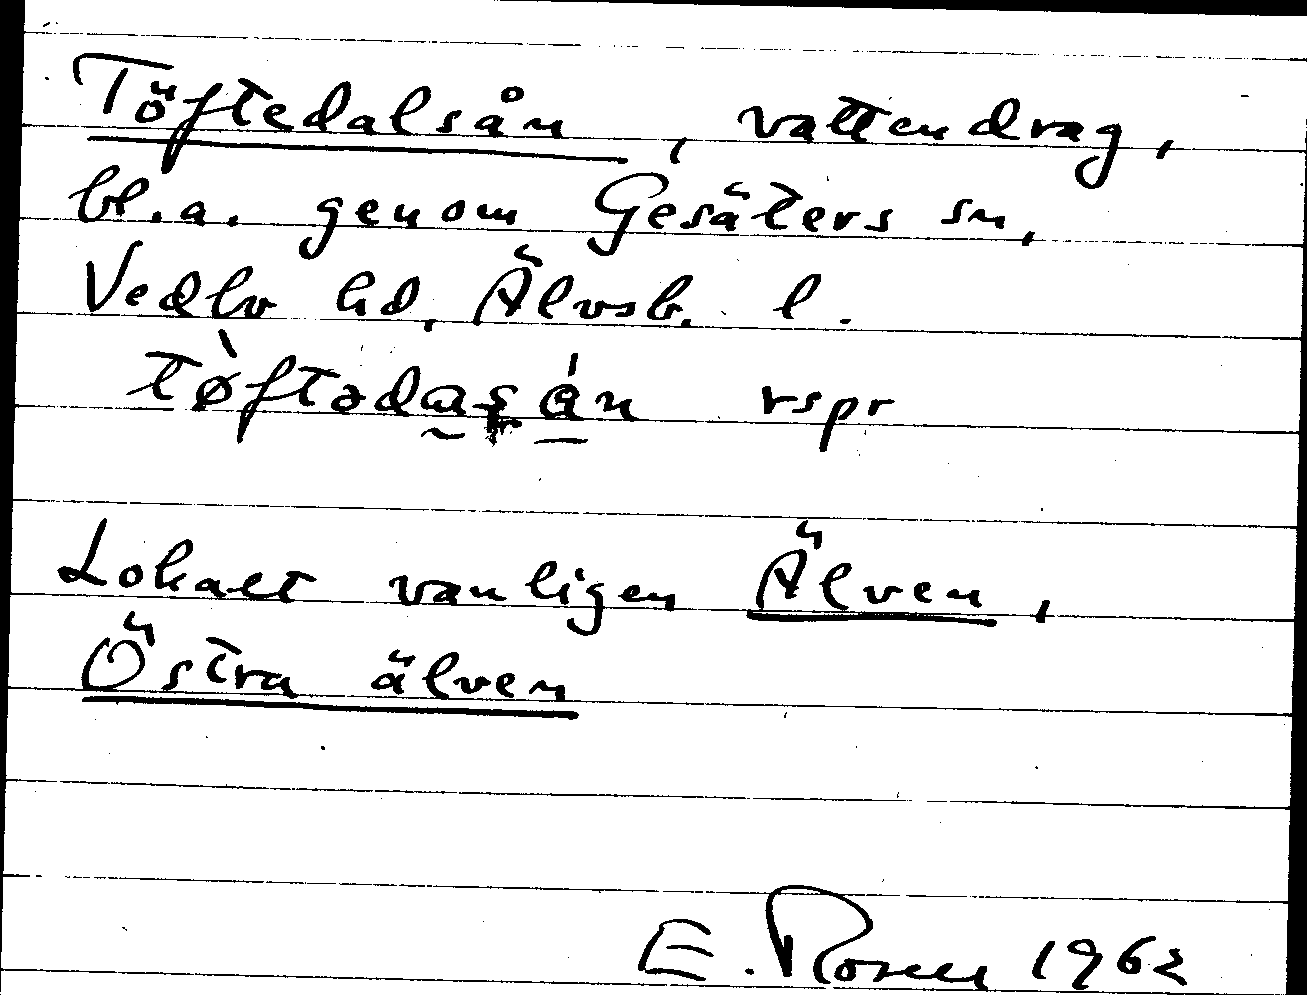 Töftedalsån, vattendrag,
bl.a. genom Gesäters sn,
Vedbo hd, Älvsb. l.
tø̀ftədasán rspr
Lokalt vanligen Älven,
Östra älven
E. Rosell 1962